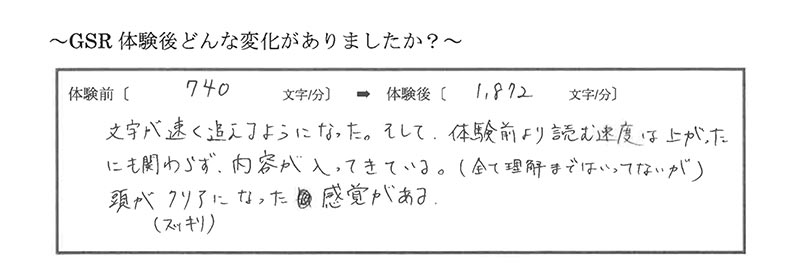 ～GSR 体験後どんな変化がありましたか？～
体験前〔 740 文字/分〕 ➡ 体験後〔 1,872 文字/分〕
文字が速く追えるようになった。そして、体験前より読む速度は上がった
にも関わらず、内容が入ってきている。(全て理解まではいってないが)
頭がクリアになった感覚がある。
(スッキリ)